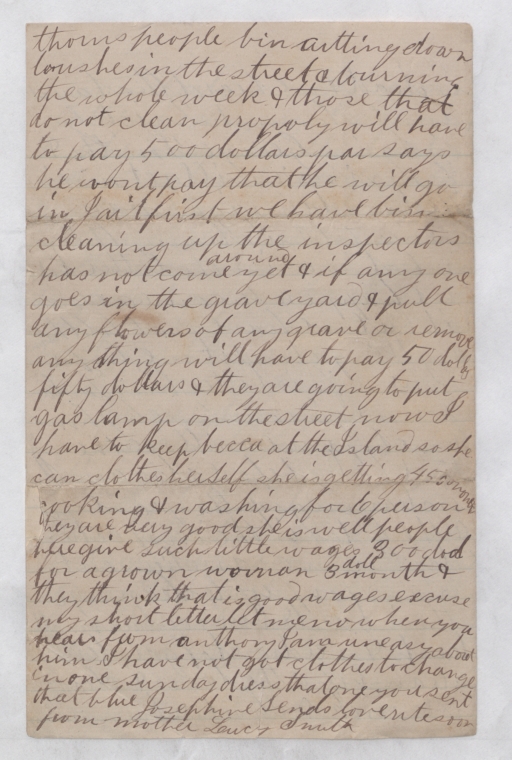 thorns people bin cutting down
bushes in the street & burning
the whole week & those that
do not clean propoly will have
to pay 500 dollars par says
he wont pay that he will go
in Jail first we have bin
cleaning up the inspectors
has not come around yet & if any one
goes in the grave yard & pull
any flowers of any grave or remove
any thing will have to pay 50 dollars
fifty dollars & they are going to put
gas lamp on the street now I
have to keep becca at the Island so she
can clothes herself she is getting
cooking & washing for 6 person
they are very good she is well people
here give such little wages 300 dol
for a grown woman 3 doll month &
they think that is good wages excuse
my short letter let me no when you
hear from anthony I am uneasy about
him I have not got clothes to change
in one sunday dress that one you sent
that blue Josephine sends love rite soon
from mother Lucy Smith